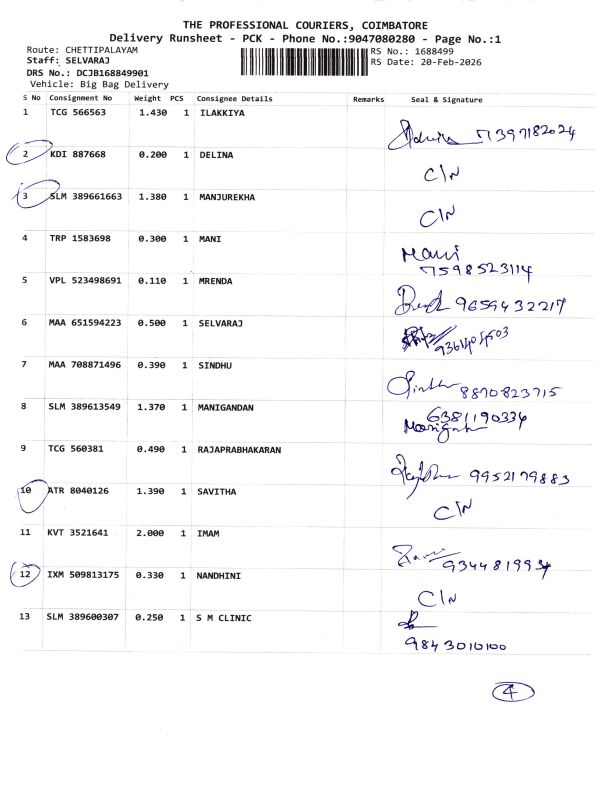 THE PROFESSIONAL COURIERS, COIMBATORE
Delivery Runsheet - PCK - Phone No.:9047080280 - Page No.:1
Route: CHETTIPALAYAM RS No.: 1688499
Staff: SELVARAJ RS Date: 20-Feb-2026
DRS No.: DCJB168849901
Vehicle: Big Bag Delivery
S No Consignment No Weight PCS Consignee Details Remarks Seal & Signature
1 TCG 566563 1.430 1 ILAKKIYA
7397182024
2 KDI 887668 0.200 1 DELINA
C/N
3 SLM 389661663 1.380 1 MANJUREKHA
C/N
4 TRP 1583698 0.300 1 MANI
Mani
7598523114
5 VPL 523498691 0.110 1 MRENDA
9659432217
6 MAA 651594223 0.500 1 SELVARAJ
7 MAA 708871496 0.390 1 SINDHU
8870823715
8 SLM 389613549 1.370 1 MANIGANDAN
6381190334
9 TCG 560381 0.490 1 RAJAPRABHAKARAN
9952179883
10 ATR 8040126 1.390 1 SAVITHA
C/N
11 KVT 3521641 2.000 1 IMAM
12 IXM 509813175 0.330 1 NANDHINI
C/N
13 SLM 389600307 0.250 1 S M CLINIC
9843010100
4